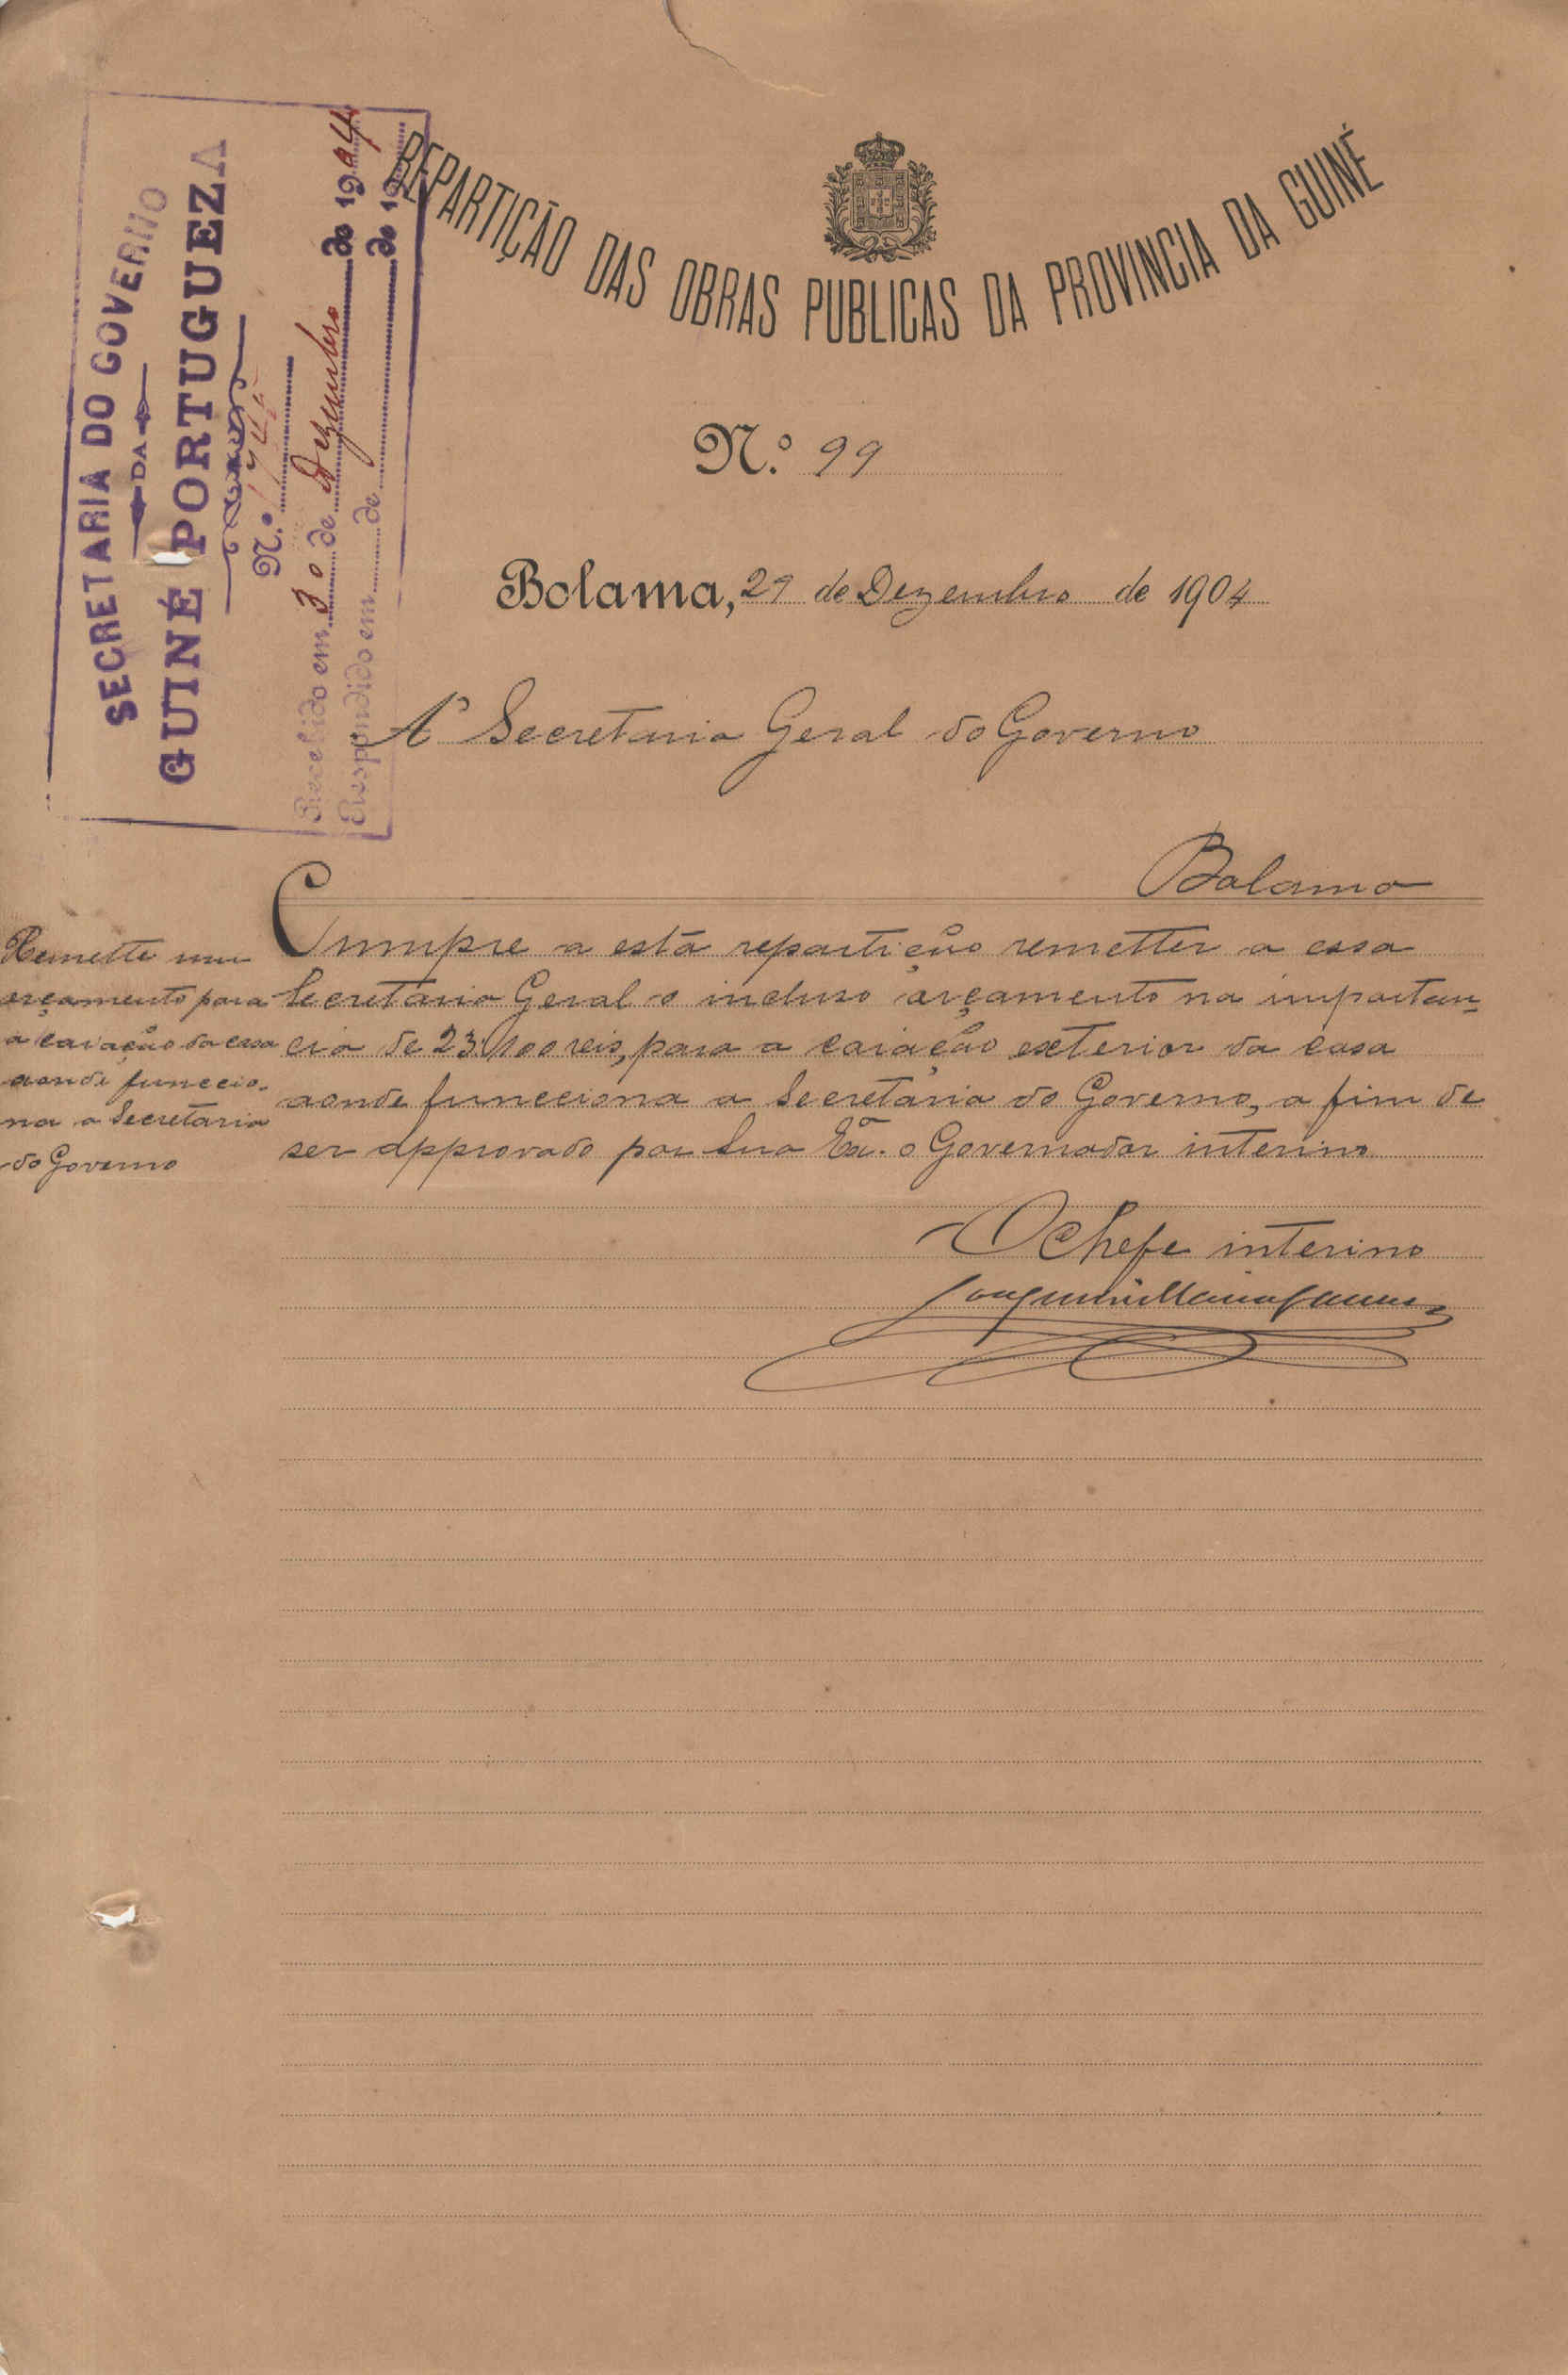 SECRETARIA DO GOVERNO
DA
GUINÉ PORTUGUEZA
N.º
Recebido em 30 de Dezembro de 1904
Respondido em de de 19
REPARTIÇÃO DAS OBRAS PUBLICAS DA PROVINCIA DA GUINÉ
N.º 99
Bolama, 29 de Dezembro de 1904
Á Secretaria Geral do Governo
Bolama
Remette um
orçamento para
a caiação da casa
aonde funccio-
na a Secretaria
do Governo
Cumpre a está repartição remetter a essa
Secretaria Geral o incluso orçamento na importan-
cia de 23:100 reis, para a caiação exterior da casa
aonde funcciona a Secretaria do Governo, a fim de
ser approvado por Sua Exª. o Governador interino
O Chefe interino